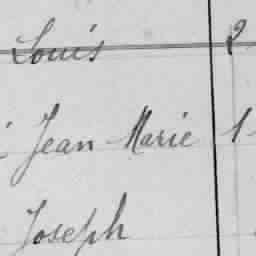 Louis 2
Jean Marie 1
Joseph